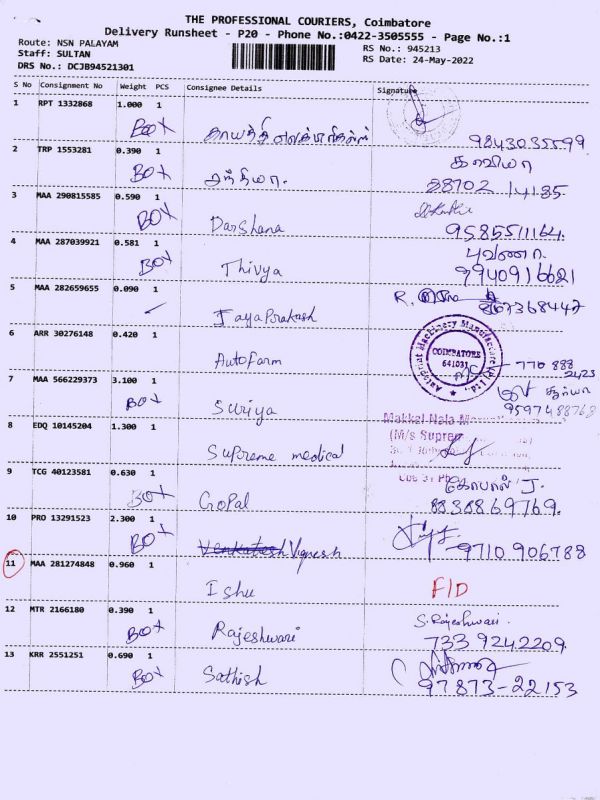 THE PROFESSIONAL COURIERS, Coimbatore
Delivery Runsheet - P20 - Phone No.:0422-3505555 - Page No.:1
Route: NSN PALAYAM
Staff: SULTAN
DRS No.: DCJB94521301
RS No.: 945213
RS Date: 24-May-2022
S No Consignment No Weight PCS Consignee Details Signature
1 RPT 1332868 1.000 1
BOX
9843035599
2 TRP 1553281 0.390 1
BOX சந்தியா.
3 MAA 290815585 0.590 1
BOX Darshana
9585551164
4 MAA 287039921 0.581 1
BOX Thivya
9940916621
5 MAA 282659655 0.090 1
JayaPrakash
6 ARR 30276148 0.420 1
Autofarm
Autoprint Machinery Manufacturers (P) Ltd.,
COIMBATORE
641031
770 888
2423
7 MAA 566229373 3.100 1
BOX Suriya
9597488768
8 EDQ 10145204 1.300 1
Supreme medical
Makkal Nala
(M/s Suprem
9 TCG 40123581 0.630 1
BOX GoPal
கோபால் J.
8838869769.
10 PRO 13291523 2.300 1
BOX Venkatesh Vignesh
9710906788
11 MAA 281274848 0.960 1
Ishu F/D
12 MTR 2166180 0.390 1
BOX Rajeshwari
S. Rajeshwari.
733 9242209
13 KRR 2551251 0.690 1
BOX Sathish
97873-22153